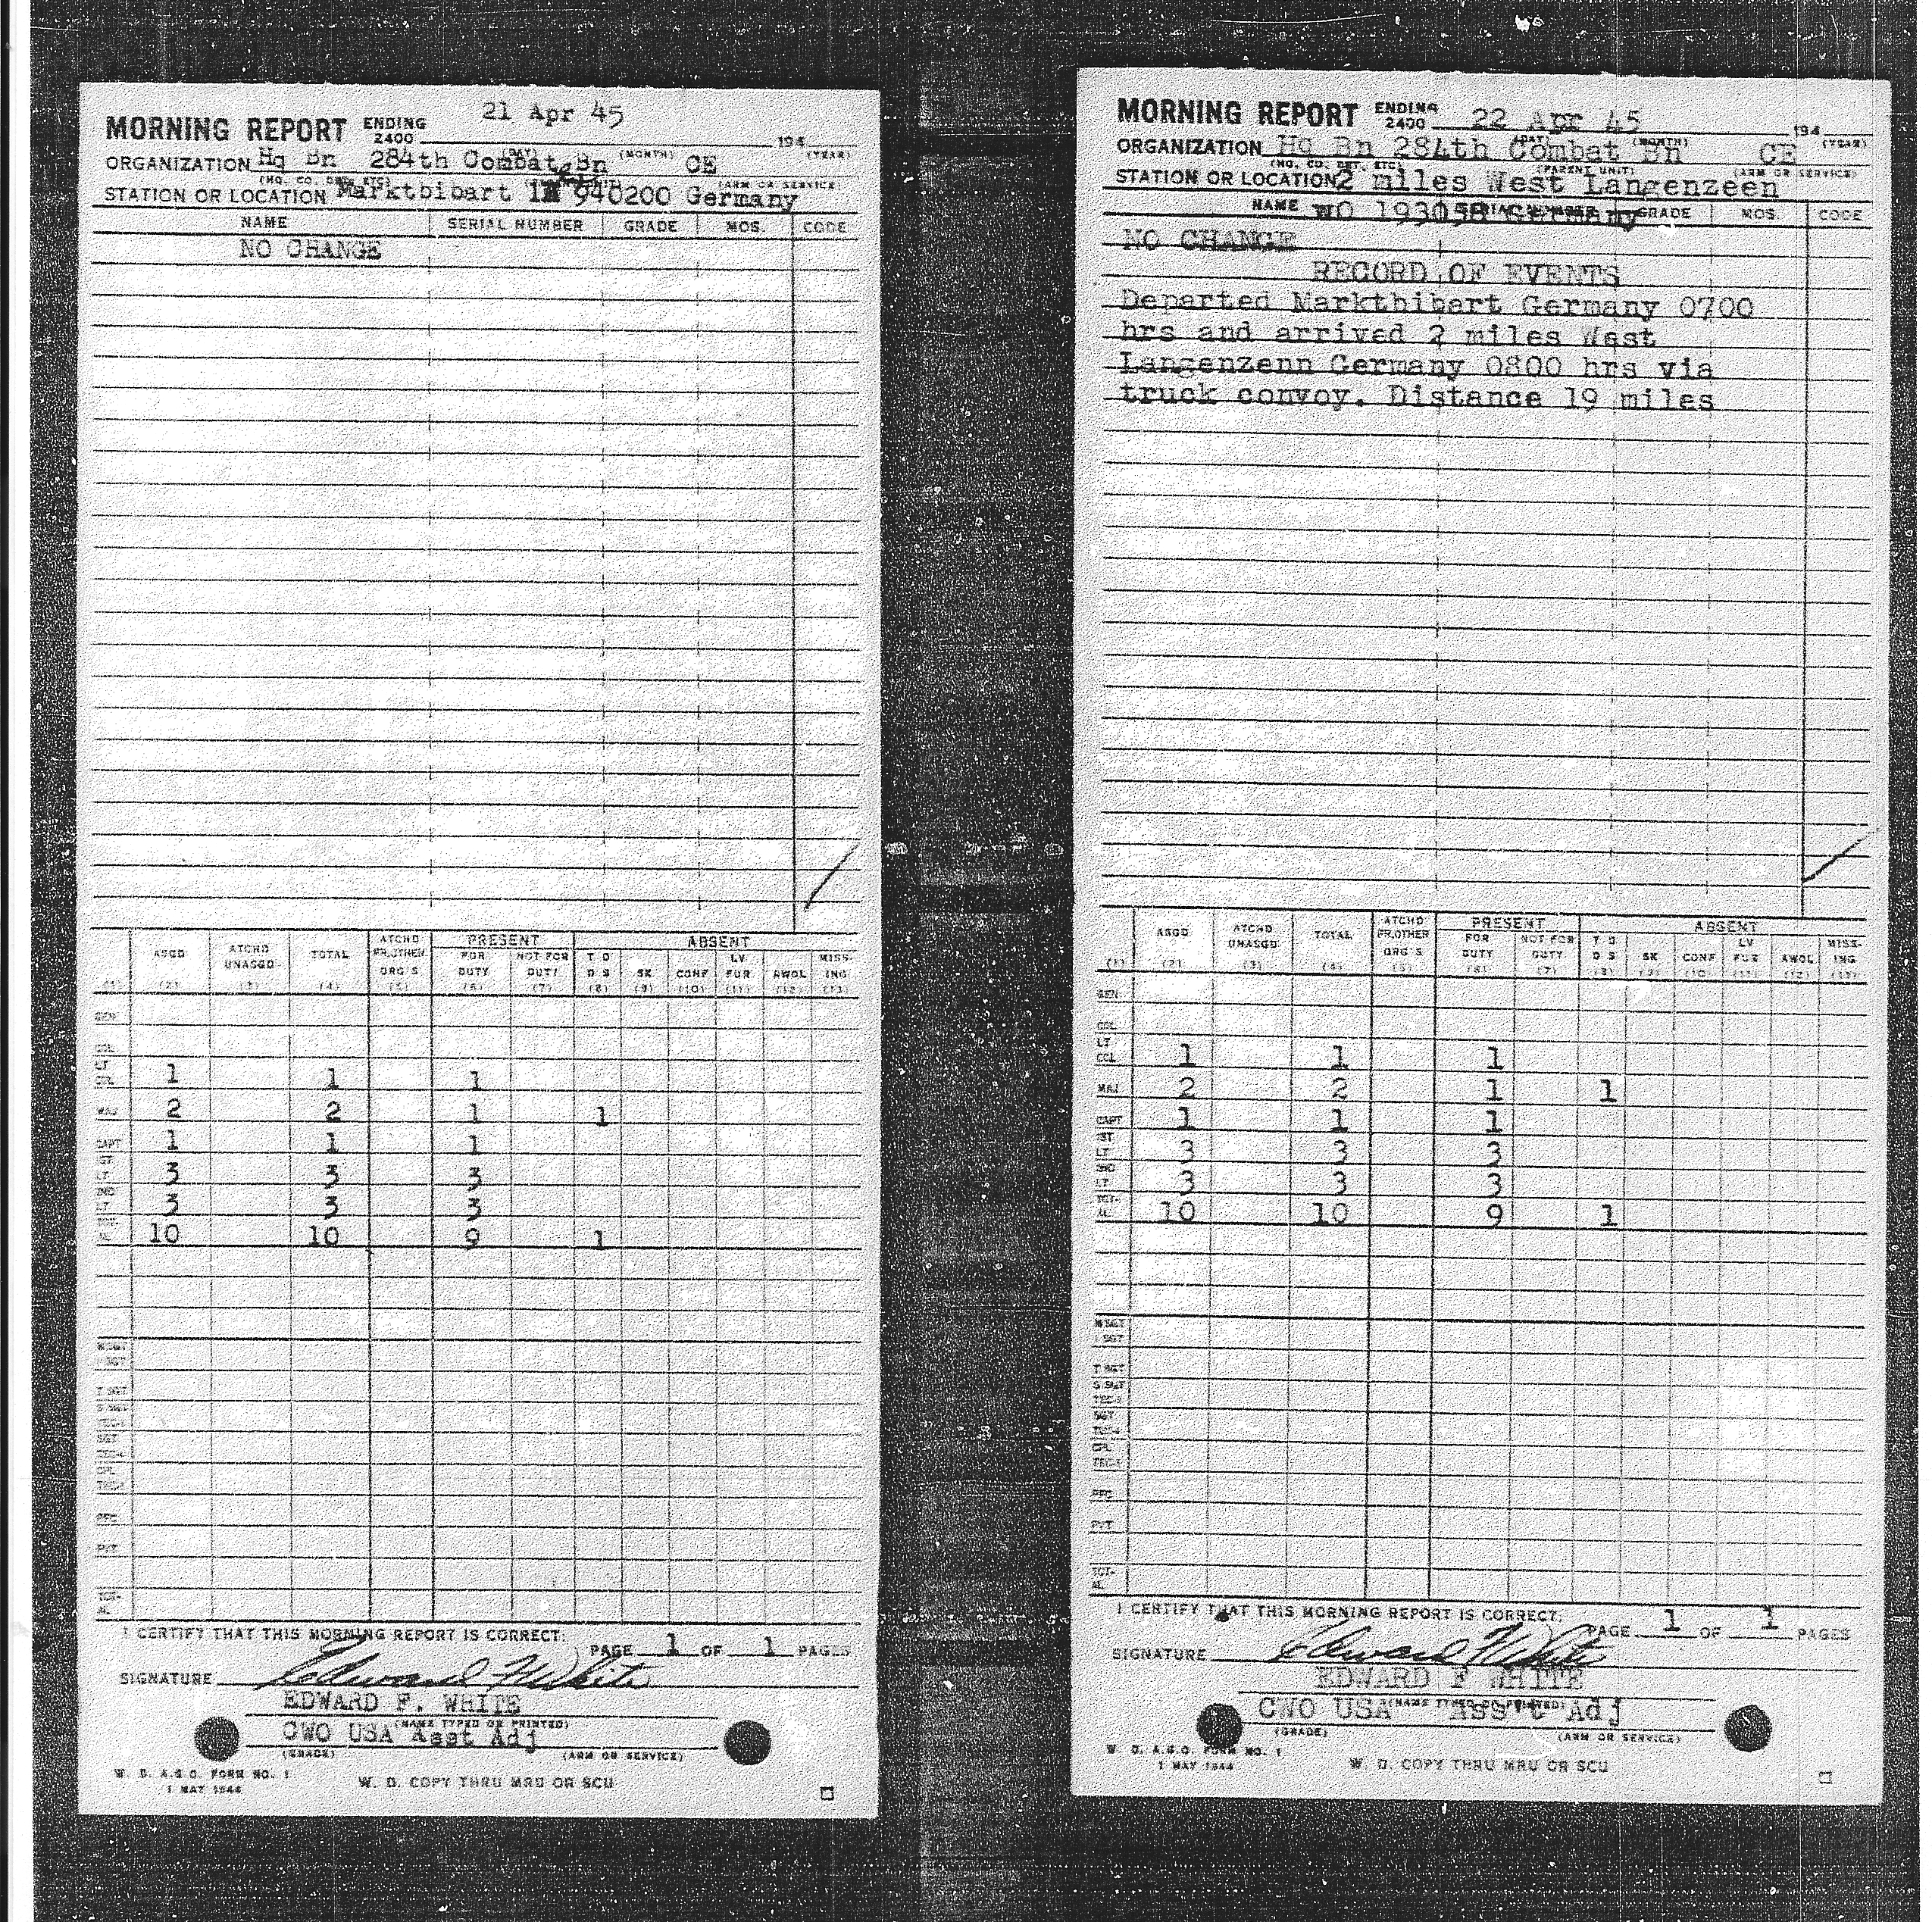 21 Apr 45
MORNING REPORT ENDING 2400 194
(DAY) (MONTH) (YEAR)
ORGANIZATION Hq Bn 284th Combat Bn CE
(HQ. CO. DET. ETC) (ARM OR SERVICE)
STATION OR LOCATION Marktbibart 940200 Germany
NAME SERIAL NUMBER GRADE MOS. CODE
NO CHANGE
PRESENT ABSENT
ASGD ATCHD UNASGD TOTAL ATCHD FR.OTHER ORG'S FOR DUTY NOT FOR DUTY T D D S SK CONF LV FUR AWOL MISS-ING
(1) (2) (3) (4) (5) (6) (7) (8) (9) (10) (11) (12) (13)
GEN
COL
LT COL 1 1 1
MAJ 2 2 1 1
CAPT 1 1 1
1ST LT 3 3 3
2ND LT 3 3 3
TOT-AL 10 10 9 1
M SGT
1 SGT
T SGT
S SGT
TEC-3
SGT
TEC-4
CPL
TEC-5
PFC
PVT
TOT-AL
I CERTIFY THAT THIS MORNING REPORT IS CORRECT:
PAGE 1 OF 1 PAGES
SIGNATURE Edward F White
EDWARD F. WHITE
(NAME TYPED OR PRINTED)
CWO USA Asst Adj
(GRADE) (ARM OR SERVICE)
W. D. A.G.O. FORM NO. 1
1 MAY 1944
W. D. COPY THRU MRU OR SCU
MORNING REPORT ENDING 2400 22 Apr 45 194
(DAY) (MONTH) (YEAR)
ORGANIZATION Hq Bn 284th Combat Bn CE
(HQ. CO. DET. ETC) (PARENT UNIT) (ARM OR SERVICE)
STATION OR LOCATION 2 miles West Langenzeen
NAME SERIAL NUMBER GRADE MOS. CODE
WO 193058 Germany
NO CHANGE
RECORD OF EVENTS
Departed Markthibart Germany 0700
hrs and arrived 2 miles West
Langenzenn Germany 0800 hrs via
truck convoy. Distance 19 miles
PRESENT ABSENT
ASGD ATCHD UNASGD TOTAL ATCHD FR.OTHER ORG'S FOR DUTY NOT FOR DUTY T D D S SK CONF LV FUR AWOL MISS-ING
(1) (2) (3) (4) (5) (6) (7) (8) (9) (10) (11) (12) (13)
GEN
COL
LT COL 1 1 1
MAJ 2 2 1 1
CAPT 1 1 1
1ST LT 3 3 3
2ND LT 3 3 3
TOT-AL 10 10 9 1
M SGT
1 SGT
T SGT
S SGT
TEC-3
SGT
TEC-4
CPL
TEC-5
PFC
PVT
TOT-AL
I CERTIFY THAT THIS MORNING REPORT IS CORRECT:
PAGE 1 OF 1 PAGES
SIGNATURE Edward F White
EDWARD F WHITE
(NAME TYPED OR PRINTED)
CWO USA Ass't Adj
(GRADE) (ARM OR SERVICE)
W. D. A.G.O. FORM NO. 1
1 MAY 1944
W. D. COPY THRU MRU OR SCU